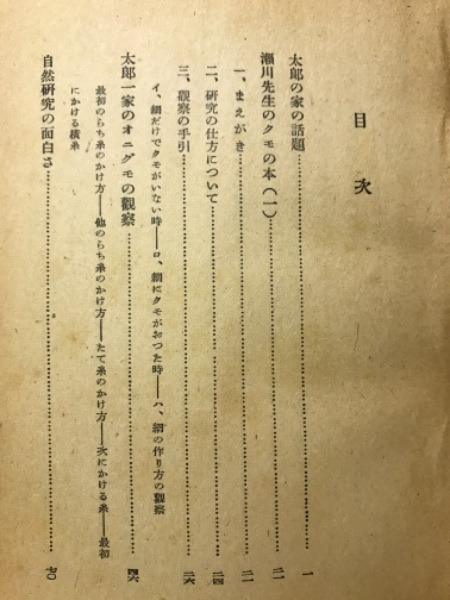 目次
太郎の家の話題……………一
瀬川先生のクモの本(一)……………二一
一、まえがき……………二一
二、研究の仕方について……………二四
三、觀察の手引……………二六
イ、網だけでクモがいない時――ロ、網にクモがおつた時――ハ、網の作り方の觀察
太郎一家のオニグモの觀察……………四六
最初のらち糸のかけ方――他のらち糸のかけ方――たて糸のかけ方――次にかける糸――最初
にかける橫糸
自然研究の面白さ……………七〇